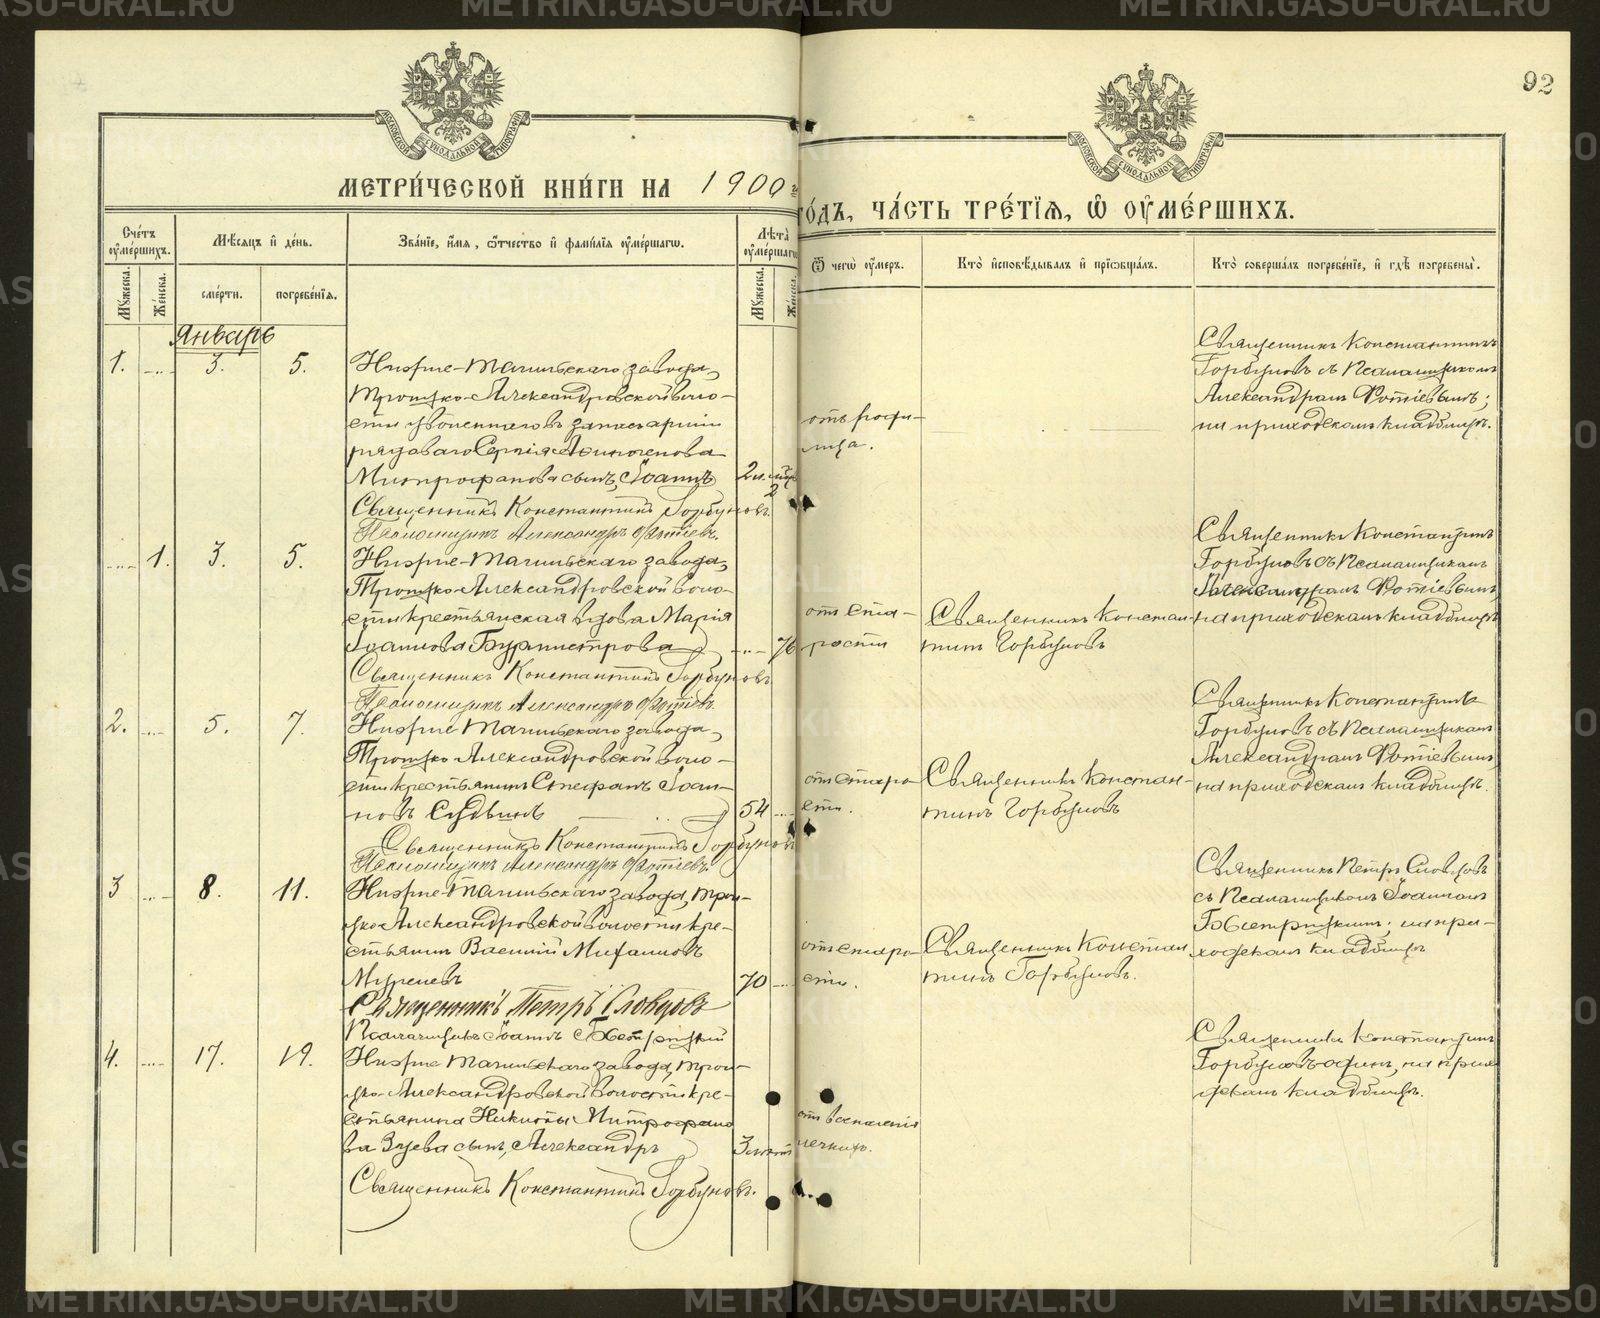 METRIKI.GASU-URAL.RU
92
МОСКОВСКОЙ СѴНОДАЛЬНОЙ ТИПОГРАФІИ
МОСКОВСКОЙ СѴНОДАЛЬНОЙ ТИПОГРАФІИ
МЕТРИ́ЧЕСКОЙ КНИ́ГИ НА 1900 г
ГО́ДЪ, ЧА́СТЬ ТРЕ́ТІЯ, Ѽ ОУ҆МЕ́РШИХЪ.
Сче́тъ оу҆ме́ршихъ.
Мѣ́сяцъ и҆ де́нь.
Зва́нїе, и҆́мя, ѻ҆́тчество и҆ фами́лїя оу҆ме́ршагѡ.
Лѣ́та оу҆ме́ршагѡ
Ѿ чегѡ̀ оу҆́меръ.
Кто̀ и҆сповѣ́дывалъ и҆ прїѡбща́лъ.
Кто̀ соверша́лъ погребе́нїе, и҆ гдѣ̀ погребены̀.
Мꙋ́жеска.
Же́нска.
сме́рти.
погребе́нїя.
Мꙋ́жеска.
Же́нска.
Январь
1. 3. 5.
Нижне-Тагильскаго завода,
Троицко-Александровской воло-
сти уволеннаго въ запас арміи
рядоваго Сергія
Митрофанова сынъ, Іоаннъ
Священникъ Константинъ Горбуновъ.
Псаломщикъ Александръ Фотіевъ.
отъ роди-
мца.
Священникъ Константинъ
Горбуновъ съ Псаломщиком
Александром Фотіевымъ;
на приходском кладбищѣ.
1. 3. 5.
Нижне-Тагильскаго завода,
Троицко-Александровской воло-
сти крестьянская вдова Марія
Іоаннова Бурмистрова 76
Священникъ Константинъ Горбуновъ
Псаломщикъ Александръ Фотіевъ
от ста-
рости
Священникъ Констан
тинъ Горбуновъ
Священникъ Константинъ
Горбуновъ съ Псаломщикам
Александрам Фотіевым,
на приходскам кладбищѣ
2. 5. 7.
Нижне Тагильскаго завода,
Троицко Александровской воло-
сти крестьянин Стефанъ Іоан-
новъ 54
Священникъ Константинъ Горбуновъ
Псаломщикъ Александръ Фотіевъ.
от старо-
сти.
Священникъ Констан-
тинъ Горбуновъ
Священникъ Константинъ
Горбуновъ съ Псаломщикам
Александрам Фотіевым,
на приходскам кладбищѣ.
3 8. 11.
Нижне-Тагильскаго завода, Трои-
цко-Александровской волости кре-
стьянин Василій Михаиловъ
70
Священникъ Петръ Словцовъ
Псаломщикъ Іоаннъ
от старо-
сти.
Священникъ Констан
тинъ Горбуновъ.
Священникъ Петръ Словцовъ
съ Псаломщиком Іоанном
на при-
ходскам кладбищѣ
4. 17. 19.
Нижне Тагильскаго завода, Трои-
цко-Александровской волости кре-
стьянина Никиты Митрофано
ва Зуева сынъ, Александръ
Священникъ Константинъ Горбуновъ.
от воспаленія
Священникъ Константинъ
Горбуновъ один, на прихо
дскам кладбищѣ.